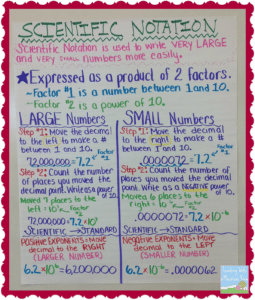 SCIENTIFIC NOTATION
Scientific Notation is used to write VERY LARGE
and VERY SMALL numbers more easily.
★Expressed as a product of 2 factors.
~Factor #1 is a number between 1 and 10.
~Factor #2 is a power of 10.
LARGE Numbers
Step #1: Move the decimal
to the left to make a #
between 1 and 10.
72,000,000=7.2 Factor #1
Step #2: Count the number
of places you moved the
decimal point. Write as a power
Moved 7 places to the
left = 10⁷ Factor #2
72,000,000=7.2×10⁷
SCIENTIFIC → STANDARD
POSITIVE EXPONENTS=Move
decimal to the RIGHT
(LARGER NUMBER)
6.2×10⁶=6,200,000
SMALL Numbers
Step #1: Move the decimal
to the right to make a #
between 1 and 10.
.0000072=7.2 Factor #1
Step #2: Count the number
of places you moved the decimal
point. Write as a NEGATIVE power
of 10.
Moved 6 places to the
right = 10⁻⁶ Factor #2
.0000072=7.2×10⁻⁶
SCIENTIFIC → STANDARD
NEGATIVE EXPONENTS=Move
decimal to the LEFT
(SMALLER NUMBER)
6.2×10⁻⁶=.0000062